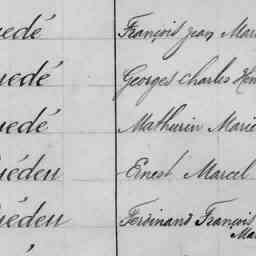 uedé François Jean Mari
uedé Georges Charles Hen
uedé Mathurin Marie
uéden Ernest Marcel
uéden Ferdinand François
Mar